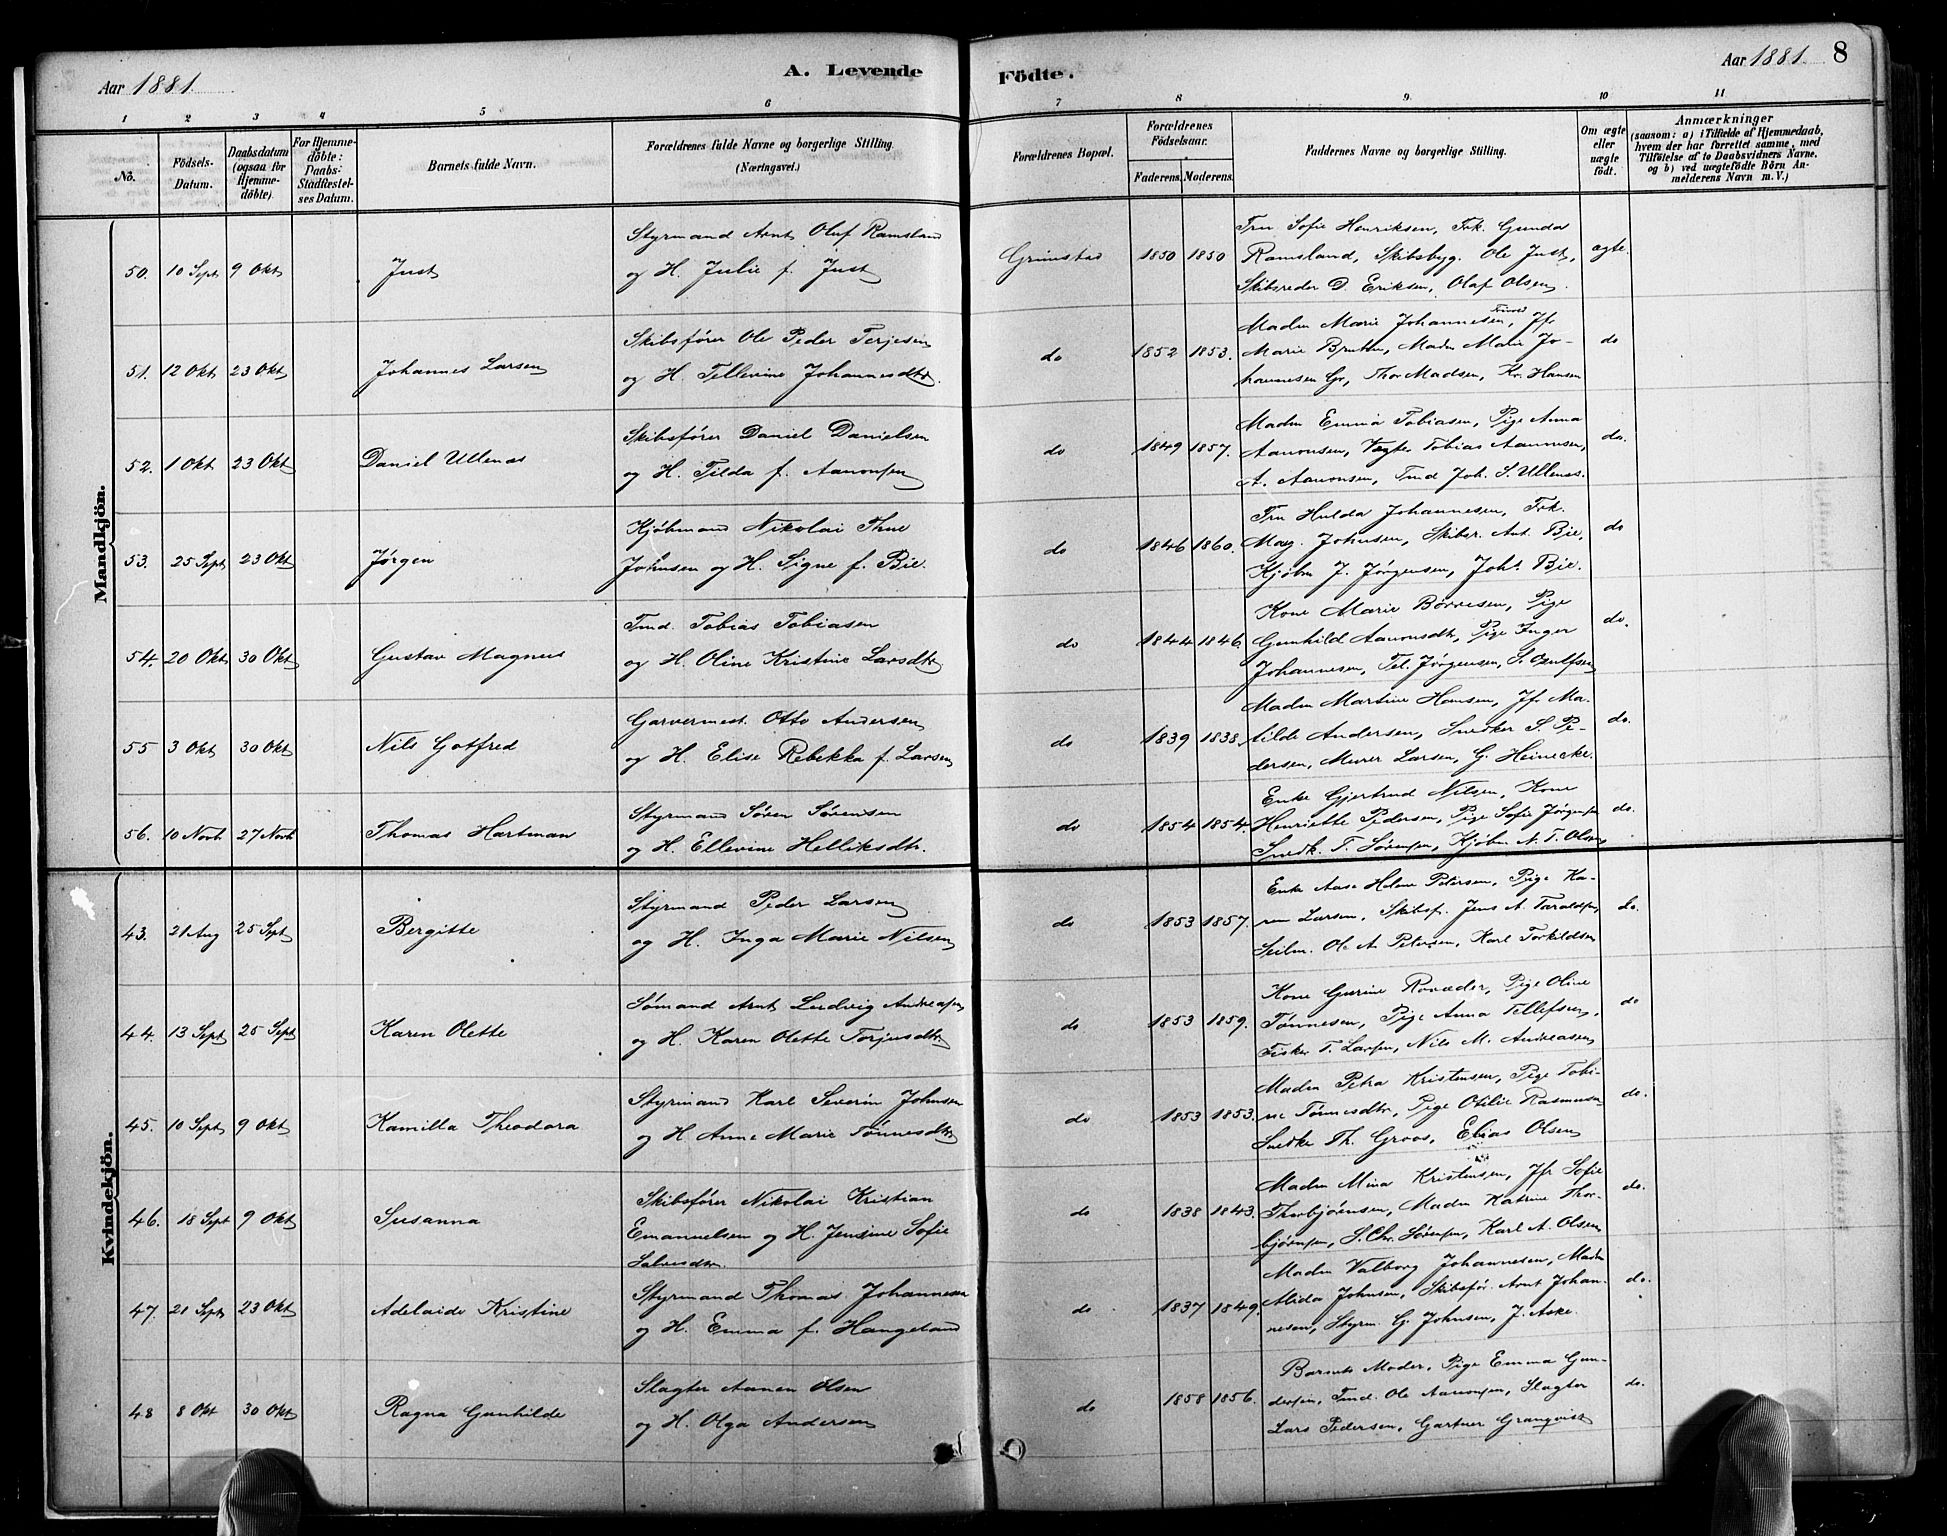 Aar 1881.
A. Levende
Födte.
Aar 1881.
8
1 2 3 4 5 6 7 8 9 10 11
No.
Födsels-
Datum.
Daabsdatum
(ogsaa for
Hjemme-
döbte).
For Hjemme-
döbte:
Daabs-
Stadfæstel-
ses Datum.
Barnets fulde Navn.
Forældrenes fulde Navne og borgerlige Stilling.
(Næringsvei.)
Forældrenes Bopæl.
Forældrenes
Födselsaar.
Faderens. Moderens.
Faddernes Navne og borgerlige Stilling.
Om ægte
eller
uægte
födt.
Anmærkninger
(saasom: a) i Tilfælde af Hjemmedaab,
hvem der har forrettet samme, med
Tilföielse af to Daabsvidners Navne,
og b) ved uægtefödte Börn An-
melderens Navn m. V.)
Mandkjön.
50. 10 Sept 9 Okt Just
Styrmand Arnt Oluf Ramsland
og H. Julie f. Just
Grimstad 1850 1850
Fru Sofie Henriksen, Frk. Gunda
Ramsland, Skibsbyg. Ole Just,
Skibsreder D. Eriksen, Olaf Olsen.
ægte.
51. 12 Okt 23 Okt Johannes Larsen
Skibsfører Ole Peder Terjesen
og H. Tellevine Johannesdtr.
do 1852 1853.
Madm Marie Johannesen, Jfr
Marie Madm Marie Jo-
hannesen Gr, Thor Madsen, Kr. Hansen
do
52. 1 Okt 23 Okt Daniel Ullenes
Skibsfører Daniel Danielsen
og H. Tilda f. Aanonsen
do 1849 1857.
Madm Emma Tobiasen, Pige Anna
Aanonsen, Vægter Tobias Aanonsen,
A. Aanonsen, Tmd Joh. S. Ullenes.
do.
53. 25 Sept 23 Okt Jørgen
Kjøbmand Nikolai Thue
Johnsen og H. Signe f. Bie.
do 1846 1860.
Fru Hulda Johannesen, Frk.
Mag. Johnsen, Skibsr. Ant. Bie,
Kjøbm J. Jørgensen, Joh. Bie.
do
54. 20 Okt 30 Okt Gustav Magnus
Tmd. Tobias Tobiasen
og H. Oline Kristine Larsdtr
do 1844 1846.
Kone Marie Børresen, Pige
Gunhild Aanonsdtr, Pige Inger
Johannesen, Tel. Jørgensen, S.
do.
55 3 Okt 30 Okt Nils Gotfred
Garvermest. Otto Andersen
og H. Elise Rebekka f. Larsen
do 1839 1838.
Madm Martine Hansen, Jfr Ma-
tilde Andersen, Snedker S. Pe-
dersen, Murer Larsen, G. Heinecke.
do.
56. 10 Novb 27 Novb Thomas Hartman
Styrmand Søren Sørensen
og H. Ellevine Helliksdtr.
do 1854 1854.
Enke Gjertrud Nilsen, Kone
Henriette Pedersen, Pige Sofie Jørgensen
Snedk. T. Sørensen, Kjøbm N. T. Olsen
do.
Kvindekjön.
43. 21 Aug 25 Sept Bergitte
Styrmand Peder Larsen
og H. Inga Marie Nilsen
do 1853 1857.
Enke Aase Helene Petersen, Pige Ka-
ren Larsen, Skibsf. Jens A. Taraldsen,
Seilm. Ole A. Petersen, Karl Torkildsen
do.
44. 13 Sept 25 Sept Karen Olette
Sømand Arnt Ludvig Andreasen
og H. Karen Olette Torjusdtr
do 1853 1859.
Kone Gurine Pige Oline
Tønnesen, Pige Anna Tellefsen,
Fisker T. Larsen, Nils M. Andreasen
do
45. 10 Sept 9 Okt Kamilla Theodora
Styrmand Karl Severin Johnsen
og H Anne Marie Tønnesdtr
do 1853 1853.
Madm Petra Kristensen, Pige Tobi-
ne Tønnesdtr, Pige Otilie Rasmussen
Snedker Th. Groos, Elias Olsen
do.
46. 18 Sept 9 Okt Susanna
Skibsfører Nikolai Kristian
Emanuelsen og H. Jensine Sofie
Salvesdtr.
do 1838 1843.
Madm Mina Kristensen, Jfr Sofie
Thorbjørensen, Madm Katrine Thor-
bjørnsen, S. Chr. Sørensen, Karl A. Olsen
do.
47. 21 Sept 23 Okt Adelaide Kristine
Styrmand Thomas Johannesen
og H. Emma f. Haugeland
do 1837 1849.
Madm Valborg Johannesen, Madm
Alida Johnsen, Skibsfør. Arnt Johan-
nesen, Styrm. G. Johnsen, J. Aske.
do.
48 8 Okt 30 Okt Ragna Gunhilde
Slagter Aanen Olsen
og H. Olga Andersen
do 1858 1856.
Barnets Moder, Pige Emma Gun-
dersen, Tmd. Ole Aanonsen, Slagter
Lars Pedersen, Gartner Granqvist
do.